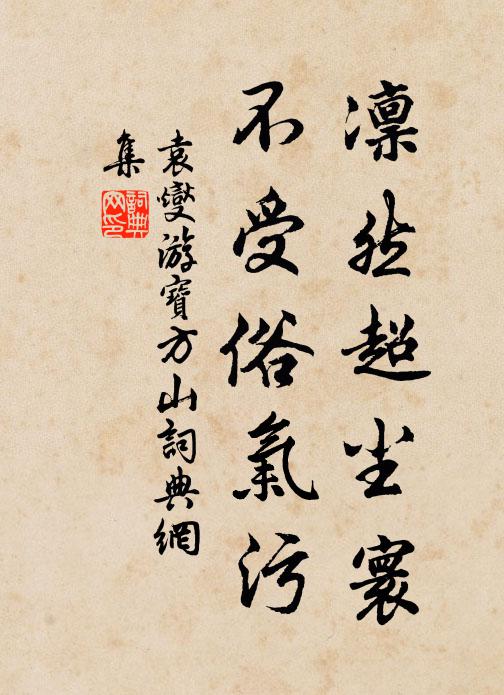 凛然超尘寰
不受俗氣污
袁燮游寶方山詞典網
集
詞典
网印